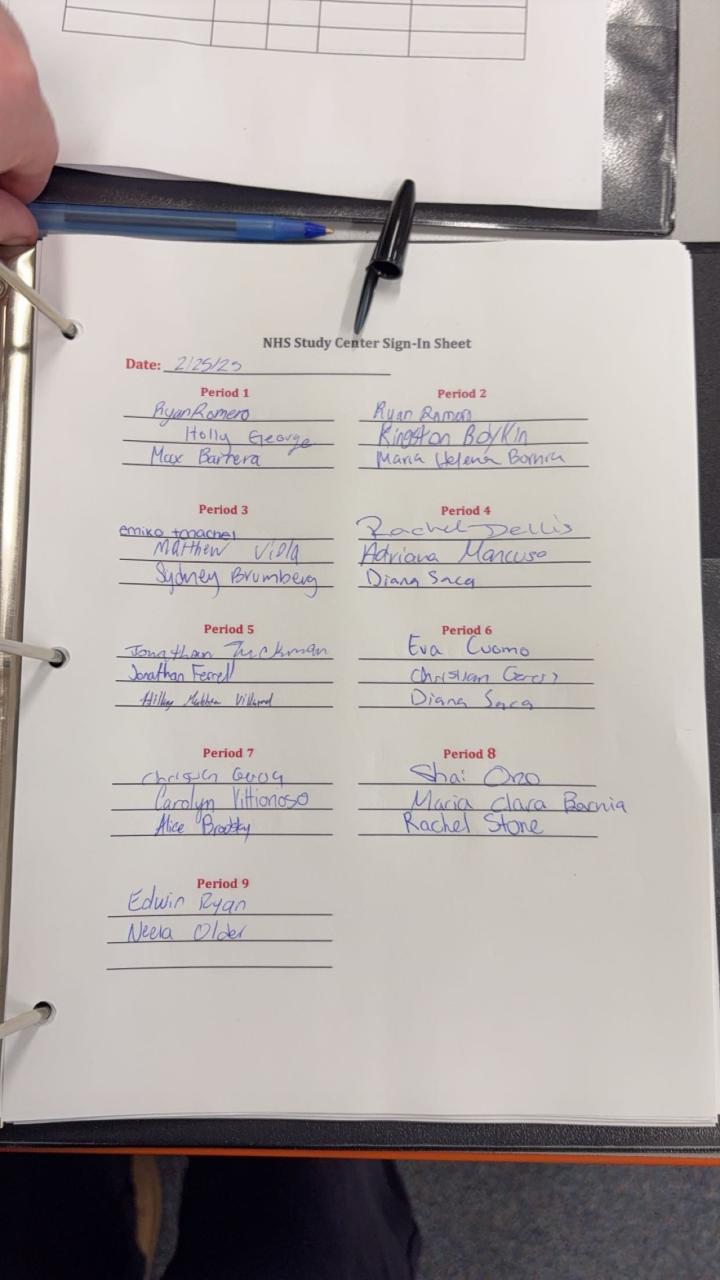 NHS Study Center Sign-In Sheet
Date: 2/25/25
Period 1
Ryan Romero
Holly George
Max Barrera
Period 2
Ryan
Kingston Boykin
Maria Helena
Period 3
emiko
Matthew Viola
Sydney Brumberg
Period 4
Rachel Dellis
Adriana Mancuso
Diana Saca
Period 5
Jonathan Tuckman
Jonathan Ferrell
Period 6
Eva Cuomo
Christian
Diana Saca
Period 7
Carolyn
Alice Brodsky
Period 8
Shai Ono
Maria Clara Bernia
Rachel Stone
Period 9
Edwin Ryan
Neela Older